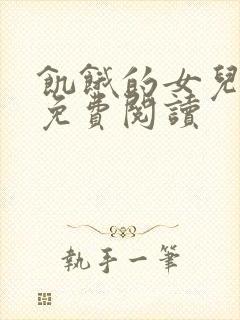 飢餓的女兒
免費閱讀
執手一筆